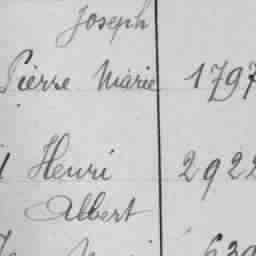 Joseph
Pierre Marie 1797
Henri 2922
Albert